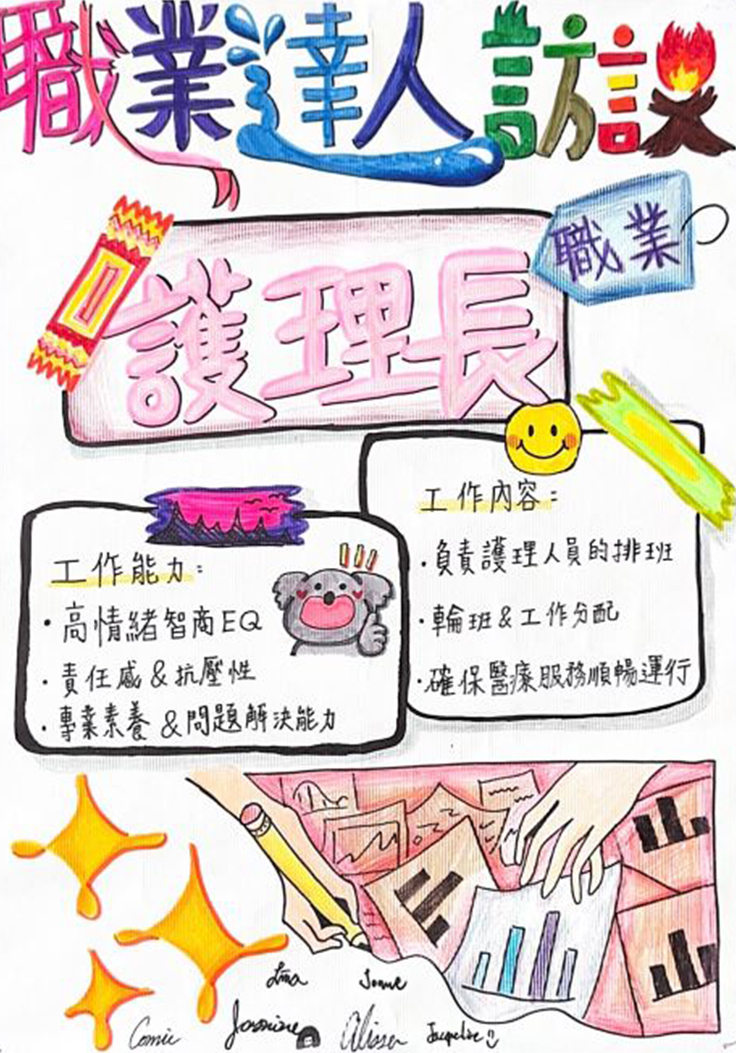 職業達人訪談
職業
護理長
工作內容：
·負責護理人員的排班
·輪班＆工作分配
·確保醫療服務順暢運行
工作能力：
·高情緒智商EQ
·責任感＆抗壓性
·專業素養＆問題解決能力
Alissa
Jacqueline